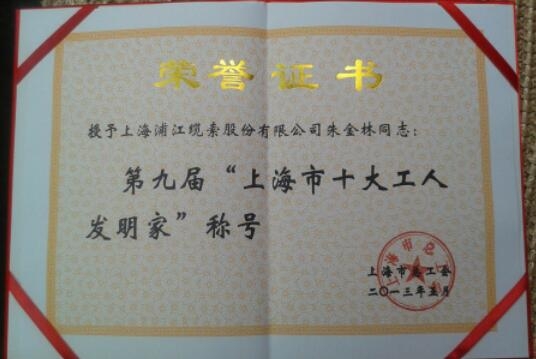 荣誉证书
授予上海浦江缆索股份有限公司朱金林同志：
第九届“上海市十大工人
发明家”称号
上海市总工会
二〇一三年五月